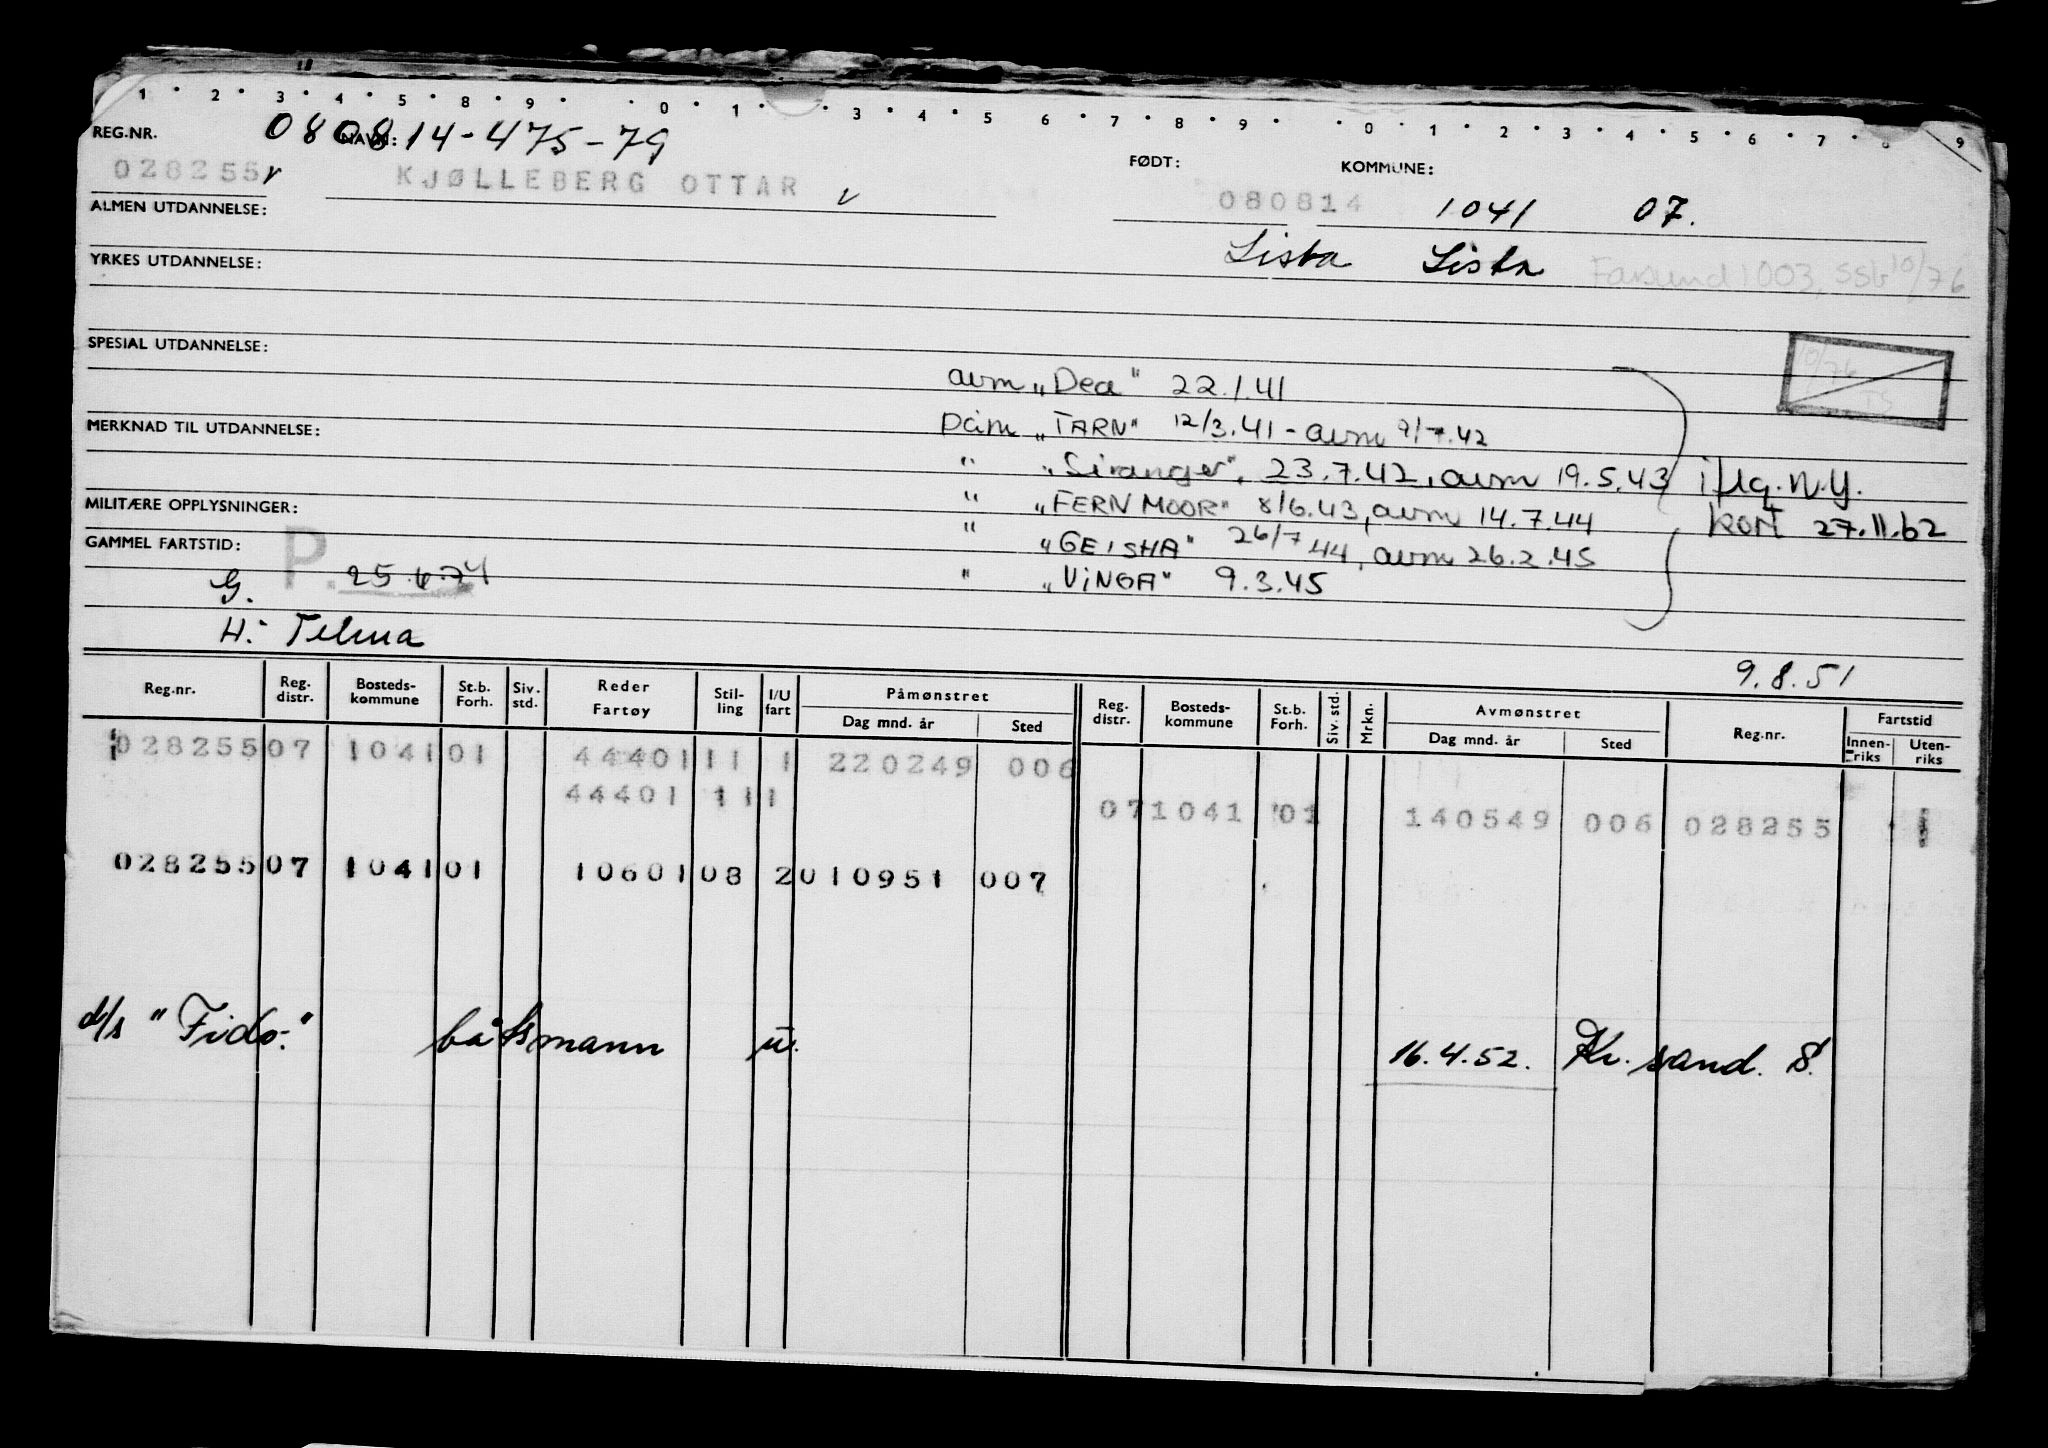 1 2 3 4 5 8 9 0 1 3 4 5 6 7 8 9 0 1 2 3 4 5 6 7 8 9
REG.NR. NAVN: 080814-475-79 FØDT: KOMMUNE:
028255 v KJØLLEBERG OTTAR v 080814 1041 07.
ALMEN UTDANNELSE:
Lista Lista Farsund 1003, SSb 10/76
YRKES UTDANNELSE:
SPESIAL UTDANNELSE: 10/76
TS
avm "Dea" 22.1.41
MERKNAD TIL UTDANNELSE: Påm "TARN" 12/3.41 - avm 9/7.42
" "Siranger", 23.7.42, avm 19.5.43 iflg. N.Y.
MILITÆRE OPPLYSNINGER: " "FERNMOOR" 8/6.43, avm 14.7.44 kort 27.11.62
GAMMEL FARTSTID: P. " "GEISHA" 26/7 44, avm 26.2.45
G. 25.6.74 " "VINGA" 9.3.45
H: Telma
9.8.51
Reg.nr. Reg. distr. Bosteds-kommune St.b. Forh. Siv. std. Reder Fartøy Stil-ling I/U fart Påmønstret Dag mnd. år Sted Reg. distr. Bosteds-kommune St.b. Forh. Siv. std. Mrkn. Avmønstret Dag mnd. år Sted Reg.nr. Fartstid Innen-riks Uten-riks
028255 07 1041 01 44401 11 1 220249 006
44401 11 1 07 1041 01 140549 006 028255 1
028255 07 1041 01 10601 08 2 010951 007
d/s "Fido." båtsmann u. 16.4.52. Kr. sand. S.